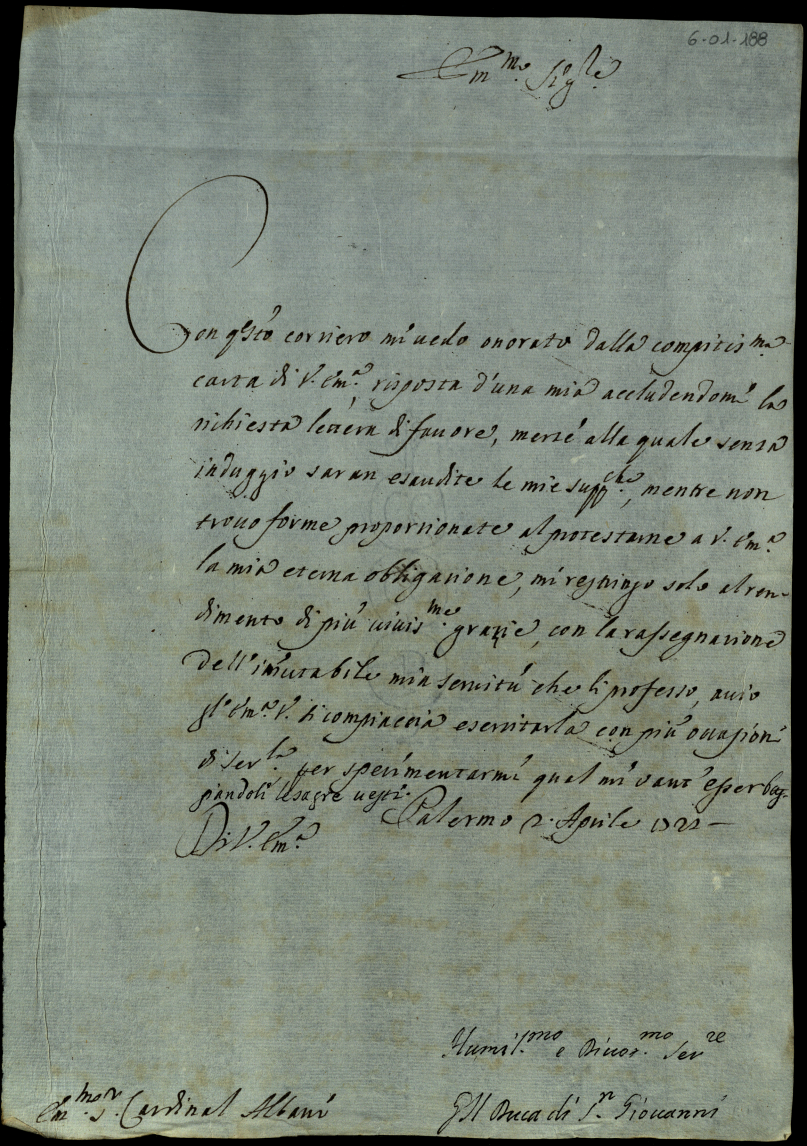 6-01-188
Em.mo Sig.re
Con q.sto corriero mi uedo onorato dalla compitis.ma
carta di V. Em.a, risposta d'una mia accludendomi la
richiesta lettera di fauore, mercé alla quale senza
induggio saran esaudite le mie supp.che, mentre non
trouo forme proporzionate al protestarne a V. Em.a
la mia eterna obbligazione, mi restringo solo al ren-
dimento di più uiuis.me grazie, con la rassegnazione
dell'immutabile mia seruitù che li professo, acciò
l'Em.a V. si compiaccia esercitarla con più occasioni
di ser.la per sperimentarmi qual mi vanti e per bag-
giandoli le sagre uesti.
Palermo 2. Aprile 1722
Di V. Em.a
Humil.mo e Diuot.mo Ser.re
Em.mo S.r Cardinal Albani
Il Duca di S.n Giouanni